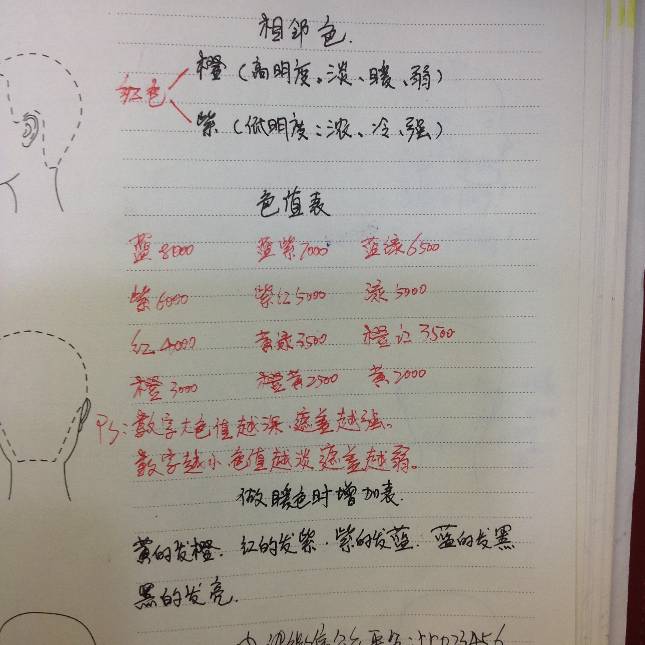 相邻色.
橙(高明度。淡、暖、弱)
红色
紫(低明度:浓、冷、强)
色值表
蓝8000 蓝紫7000 蓝绿6500
紫6000 紫红5000 绿5000
红4000 黄绿3500 橙红3500
橙3000 橙黄2500 黄2000
PS:数字大色值越深.遮盖越强。
数字越小.色值越淡遮盖越弱。
做暖色时增加表.
黄的发橙.红的发紫.紫的发蓝.蓝的发黑
黑的发亮.